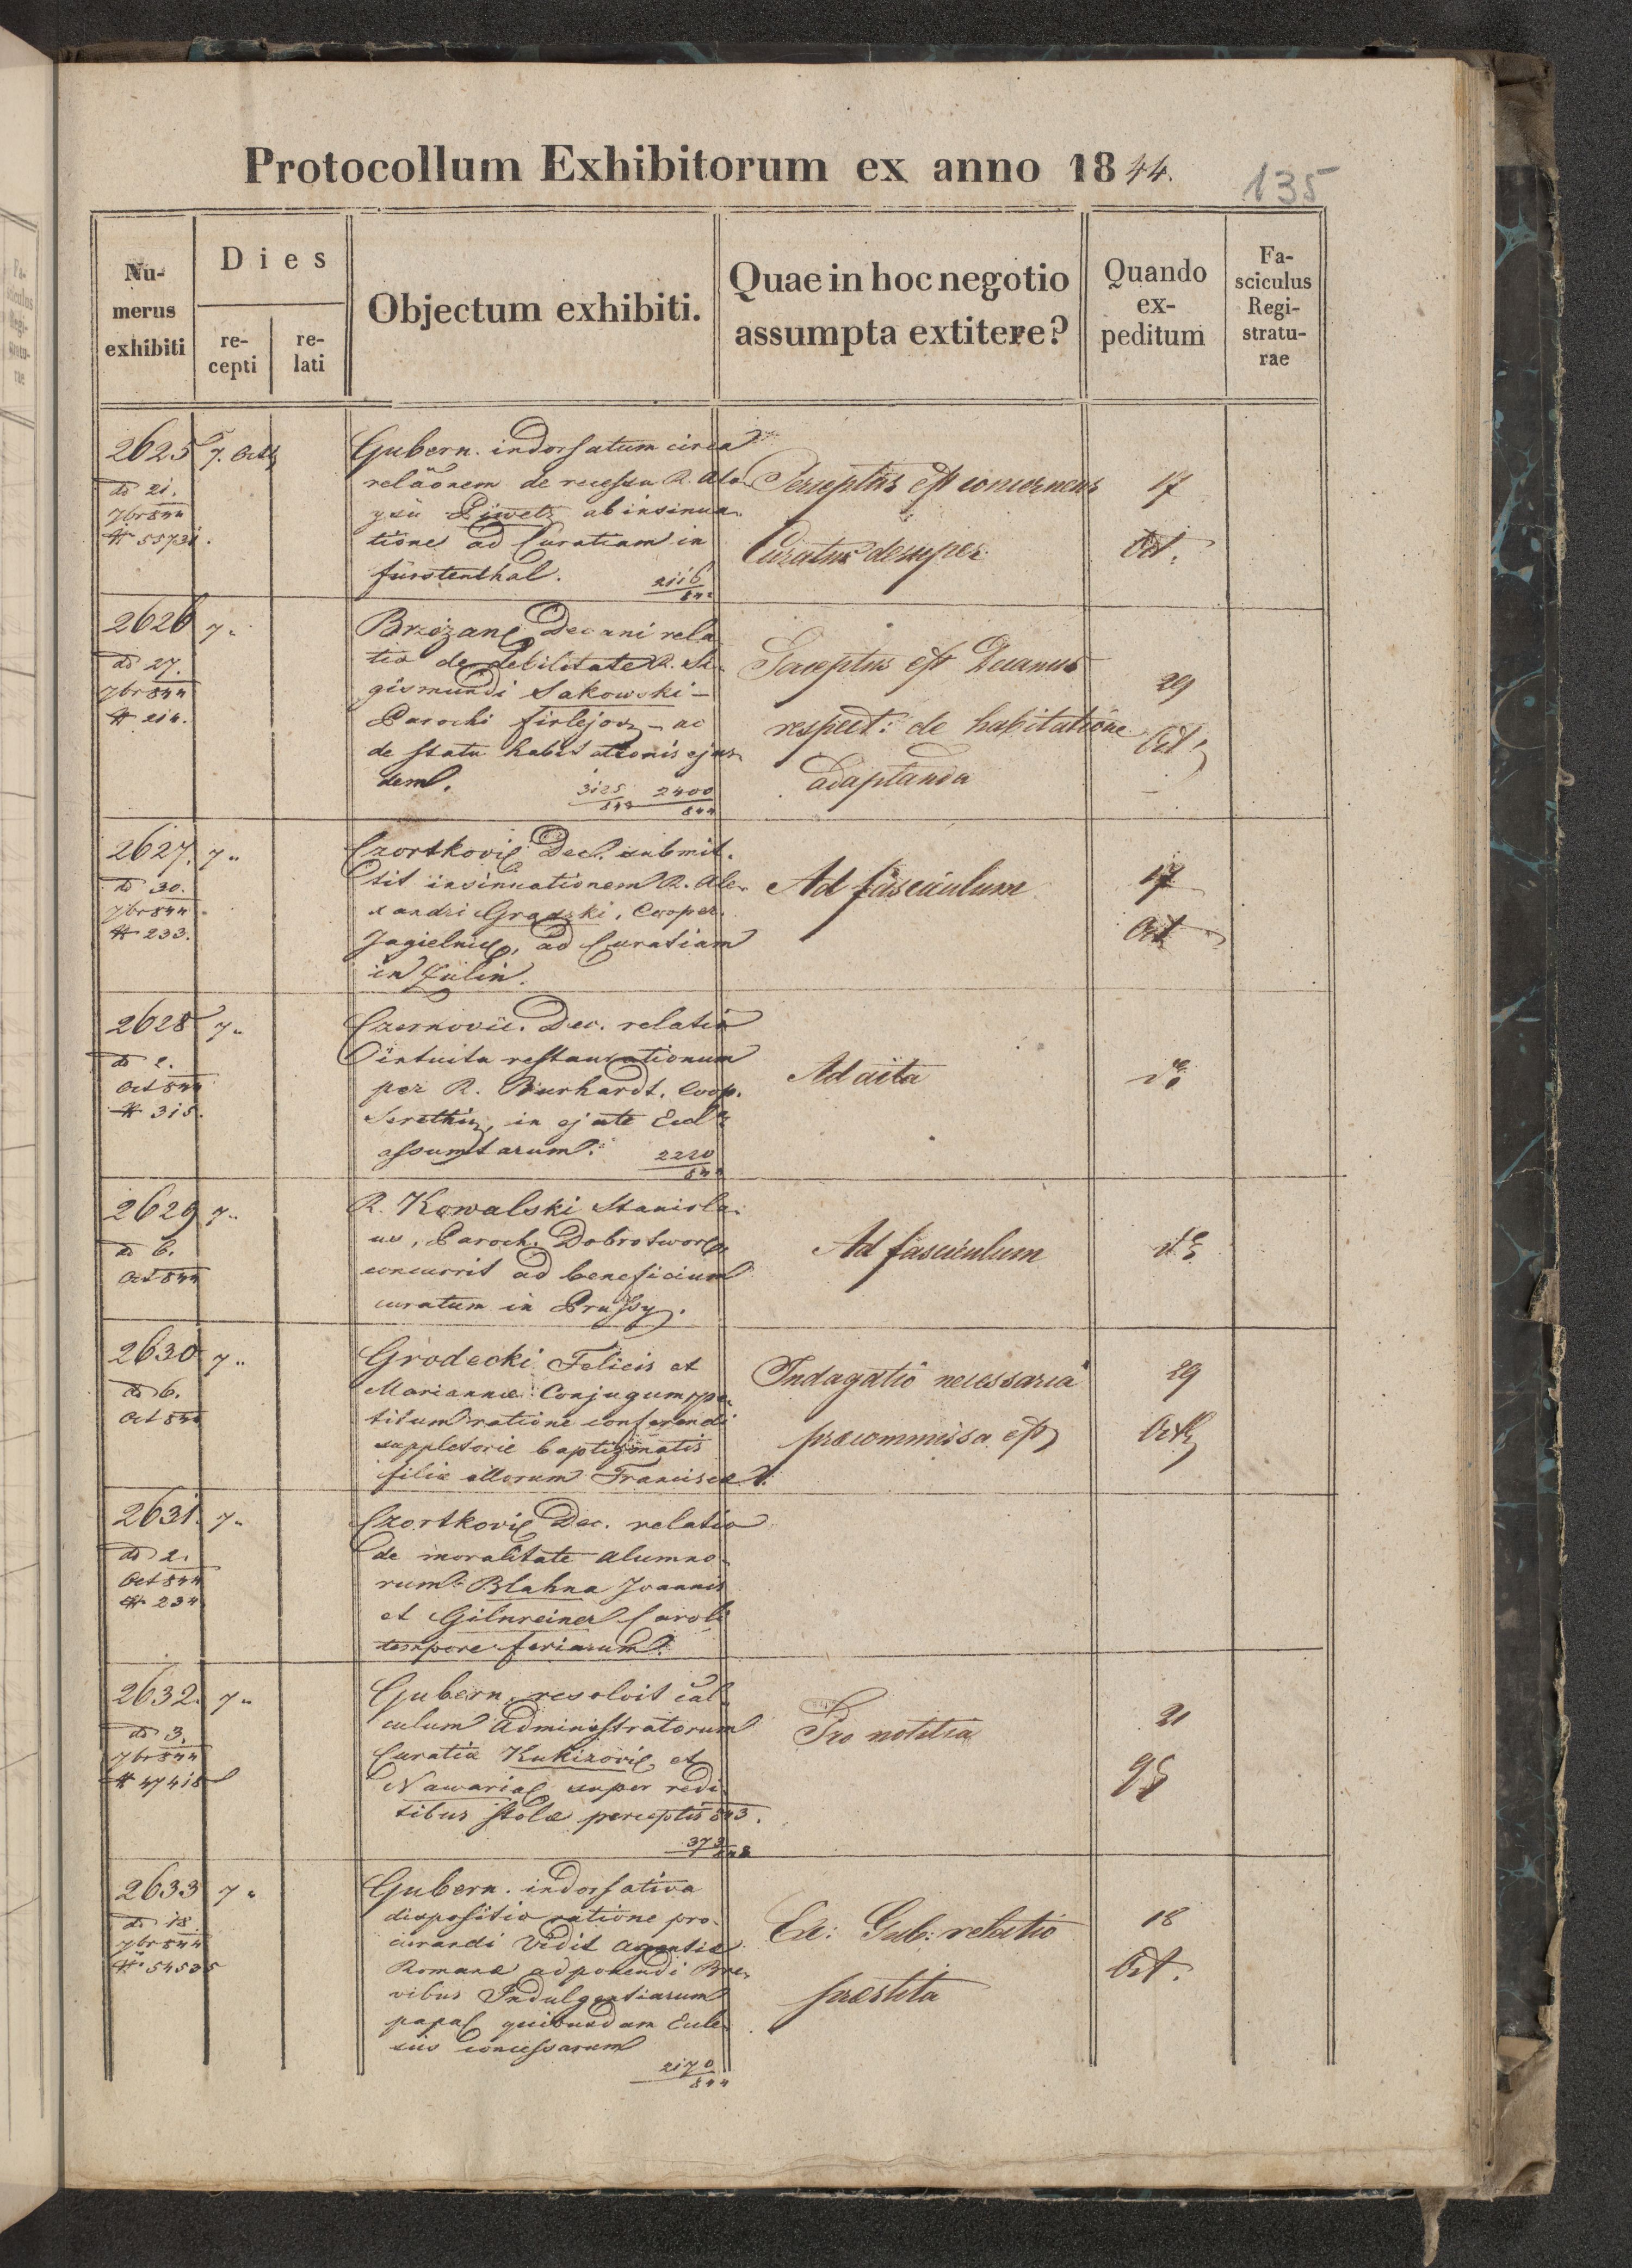 Protocollum Exhibitorum ex anno 1844.
135
Nu-
merus
exhibiti
Dies
re-
cepti
re-
lati
Objectum exhibiti.
Quae in hoc negotio
assumpta extitere?
Quando
ex-
peditum
Fa-
sciculus
Regi-
stratu-
rae
2625 7. Octb
dd 21.
7br 844
# 55731.
Gubern. indorsatum circa
relãonem de recessu R. Alo-
ysii Piwetz ab insinua-
tione ad Curatiam in
fürstenthal.
2116
844
Rescriptus est concernens
Curatus desuper.
17
Oct.
2626 7.
dd 27.
7br 844
# 214.
Brzozane Decani rela
tio de debilitate R. Si-
gismundi Sakowski -
Parochi firlejov - ac
de statu habitationis ejus-
dem.
3125 2400
843 844
Rescriptus est Decanus
respect: de habitatione
adaptanda
29
Oct
2627. 7"
dd 30.
7br 844.
# 233.
Czortkovic Dec. submit-
tit insinuationem R. Ale-
xandri Gradzki, Cooper.
Jagielnic, ad Curatiam
in Jülin.
Ad fasciculum
17
Oct
2628 7"
dd 2.
Oct 844
# 315.
Czernovic. Dec. relatio
intuitu restaurationum
per R. Burhardt, Coop.
Serethin, in ejate Eccl
assumtarum.
2220
844
Ad acta
do
2629 7"
dd 6.
Oct 844
R. Kowalski Stanisla-
us, Paroch. Dobrotwor
concurrit ad beneficium
curatum in Prussy.
Ad fasciculum
do
2630 7"
dd 6.
Oct 844
Grodecki Felicis et
Mariannæ Conjugum pe-
titum ratione conferendi
suppletorie baptismatis
filiæ illorum Franciscæ.
Indagatio necessaria
præcommissa est
29
Octb
2631. 7"
dd 2.
Oct 844
# 234
Czortkovic Dec. relatio
de moralitate alumno-
rum: Blahna Joannis
et Gilnreiner Caroli
tempore feriarum.
2632. 7"
dd 3.
7br 844
# 47418
Gubern. resolvit cal-
culum administratorum
Curatiæ Kukizovic et
Nawariac super redi-
tibus stolæ perceptis 843.
373
Pro notitia
21
2633 7"
dd 18.
7br 844
# 54535
Gubern. indorsativa
dispositio ratione pro-
curandi Vidit agentiæ
Romanæ adponendi Bre-
vibus Indulgentiarum
papal quibusdam Eccle-
siis concessarum
2170
844
Exc: Gub: relatio
præstita
18
Oct.